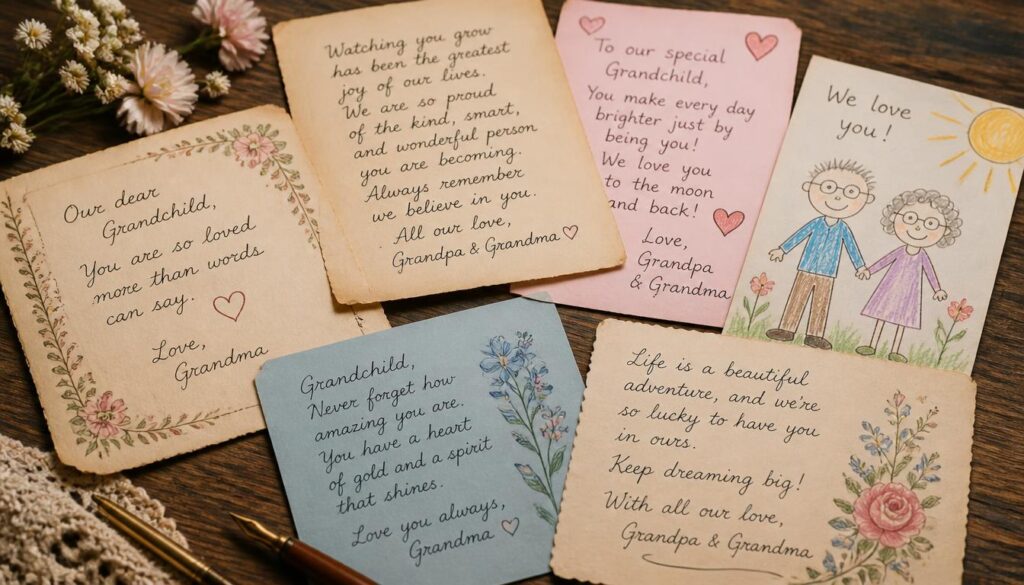 Our dear
Grandchild,
You are so loved
more than words
can say.
Love,
Grandma
Watching you grow
has been the greatest
joy of our lives.
We are so proud
of the kind, smart,
and wonderful person
you are becoming.
Always remember
we believe in you.
All our love,
Grandpa & Grandma
To our special
Grandchild,
You make every day
brighter just by
being you!
We love you
to the moon
and back!
Love,
Grandpa
& Grandma
We love
you!
Grandchild,
Never forget how
amazing you are.
You have a heart
of gold and a spirit
that shines.
Love you always,
Grandma
Life is a beautiful
adventure, and we're
so lucky to have you
in ours.
Keep dreaming big!
With all our love,
Grandpa & Grandma